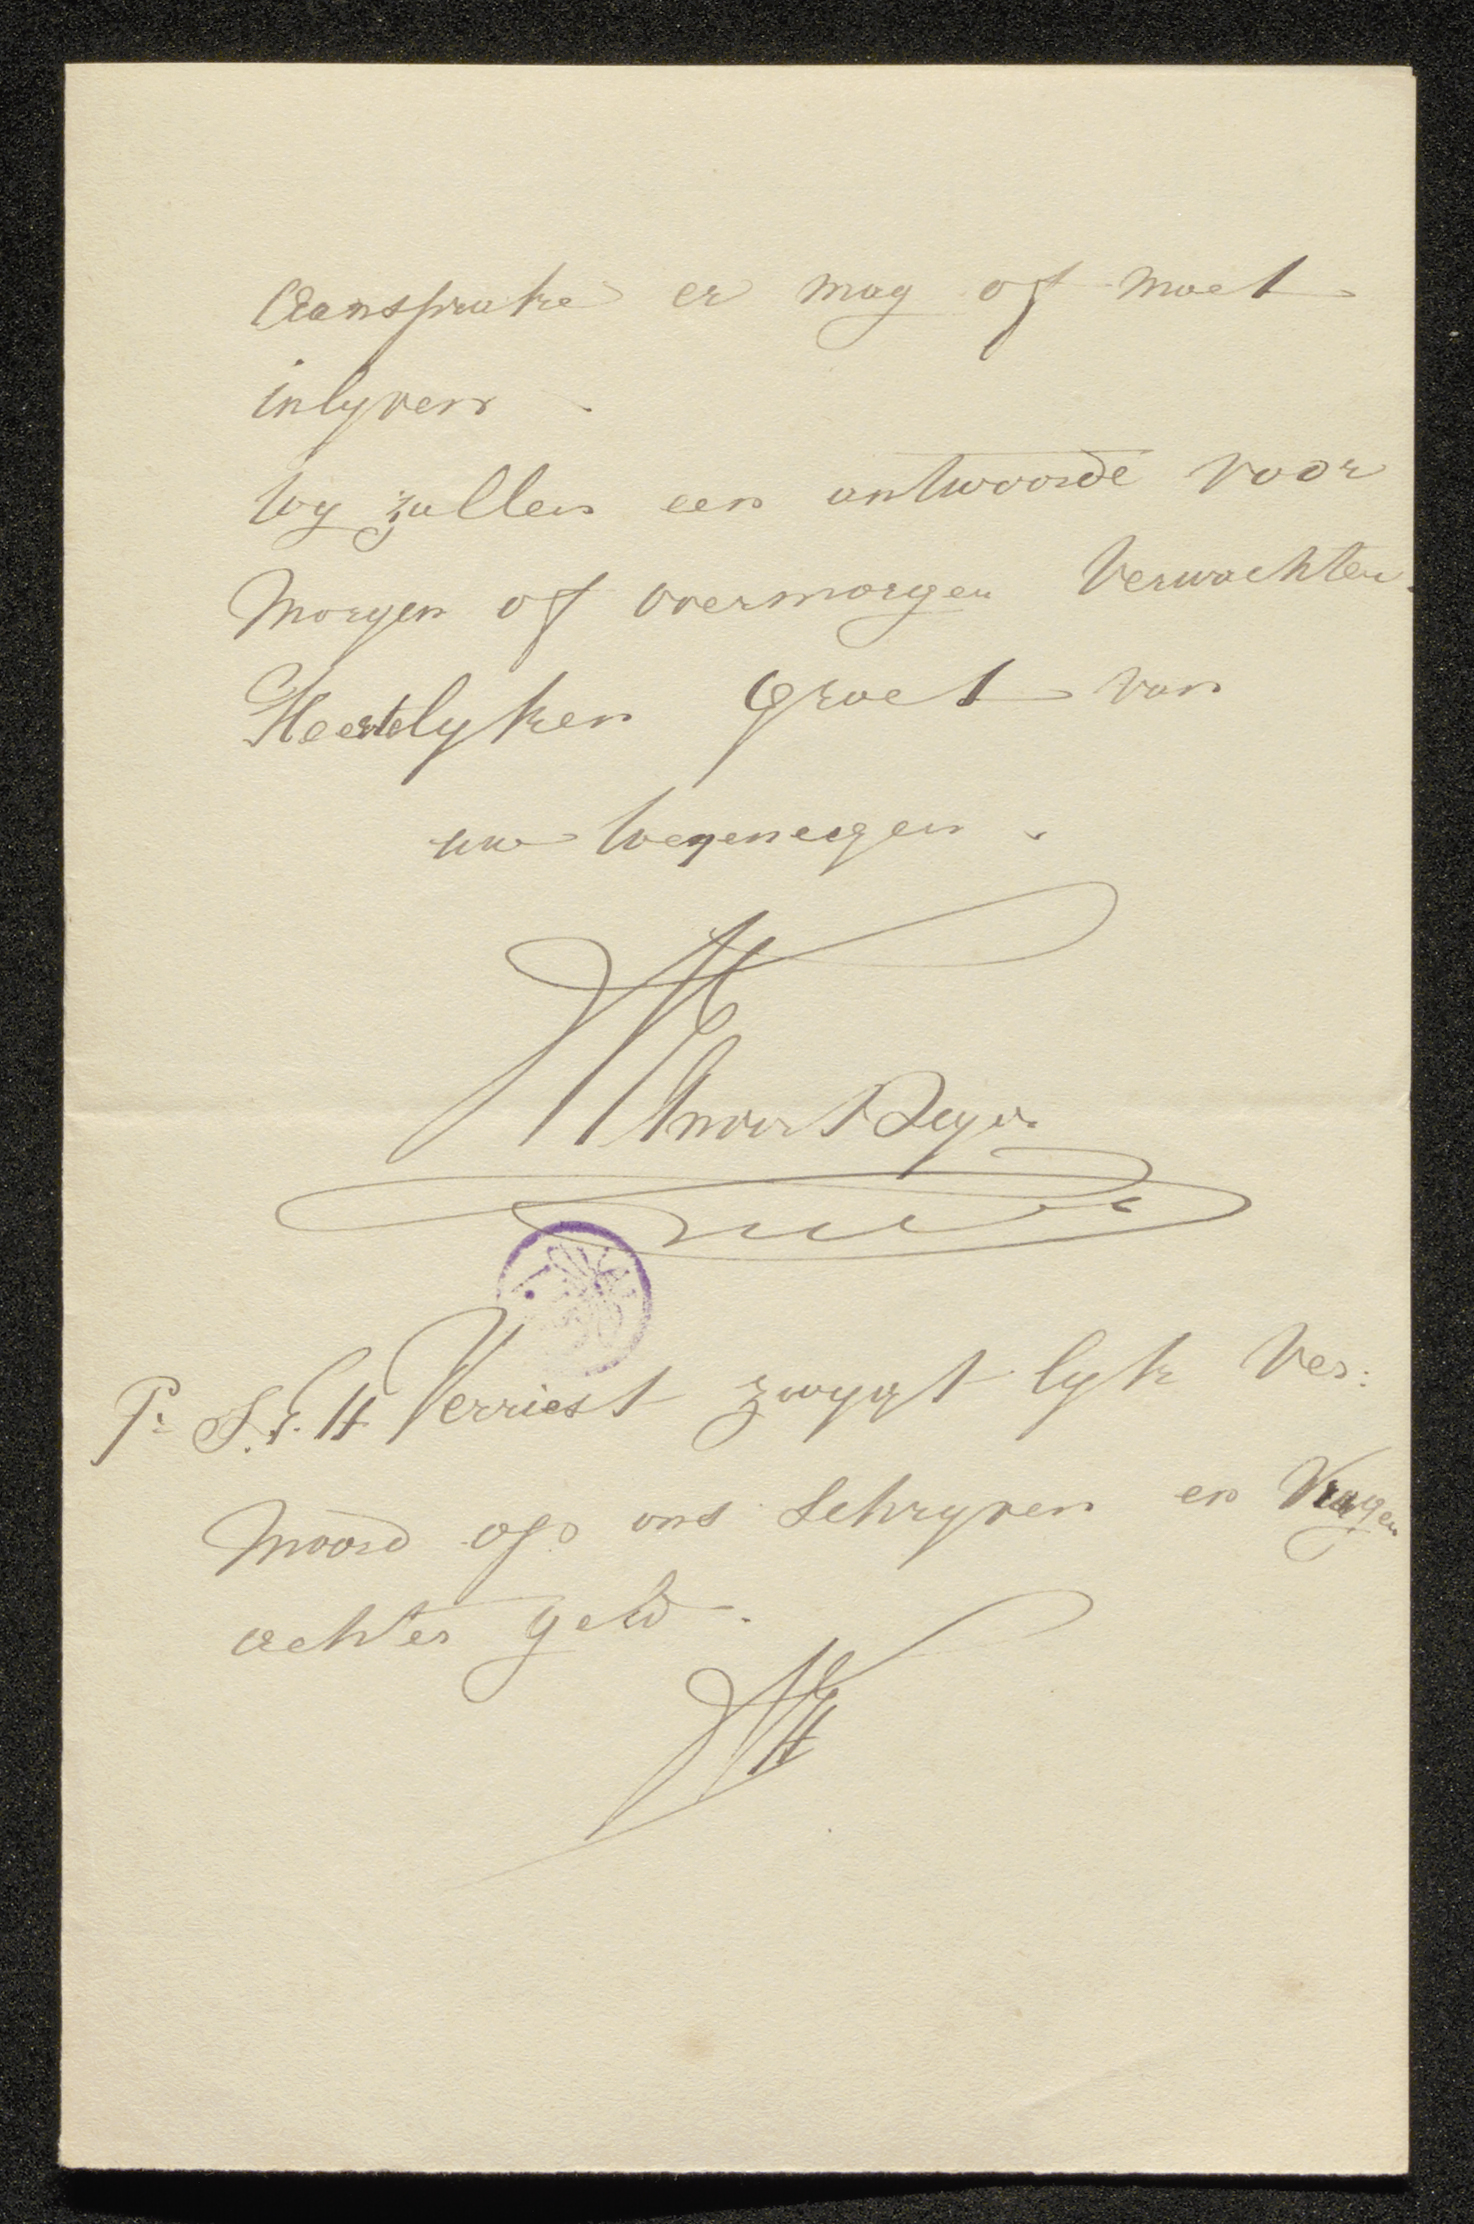 Aansprake er mag of moet
inlyven.
wy zullen een antwoorde voor
Morgen of overmorgen verwachten.
Heertelyken groet van
uw toegenegen.
P. S. H Verriest zwygt lyk Ver:
moord op ons schryven en vragen
achter geld.